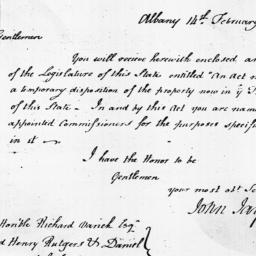 Albany 14th February
Gentlemen
You will receive herewith enclosed an
of the Legislature of this State entitled "An Act
a temporary disposition of the property now in ye
of this State – In and by this Act you are nam
appointed Commissioners for the purposes specifi
in it –
I have the Honor to be
Gentlemen
your most obt
John Jay
Honble Richard Varick Esqr
d Henry Rutgers & Daniel